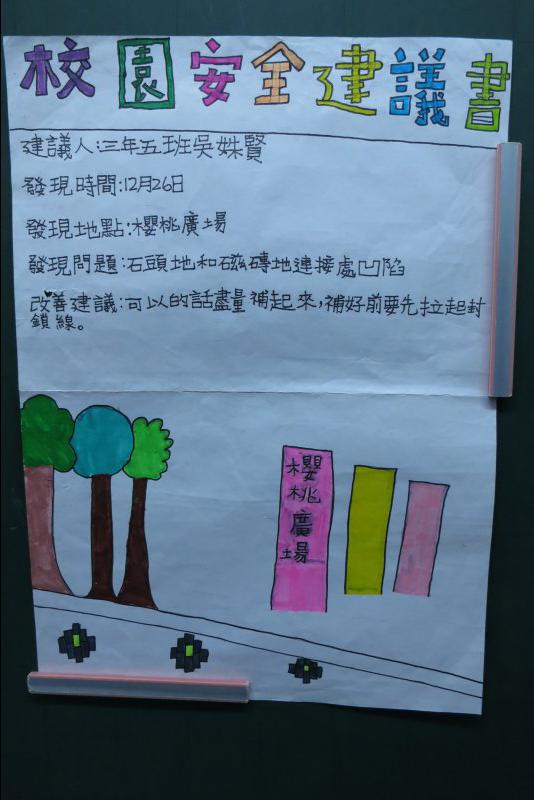 校園安全建議書
建議人:三年五班吳姝賢
發現時間:12月26日
發現地點:櫻桃廣場
發現問題:石頭地和磁磚地連接處凹陷
改善建議:可以的話盡量補起來,補好前要先拉起封
鎖線。
櫻
桃
廣
場